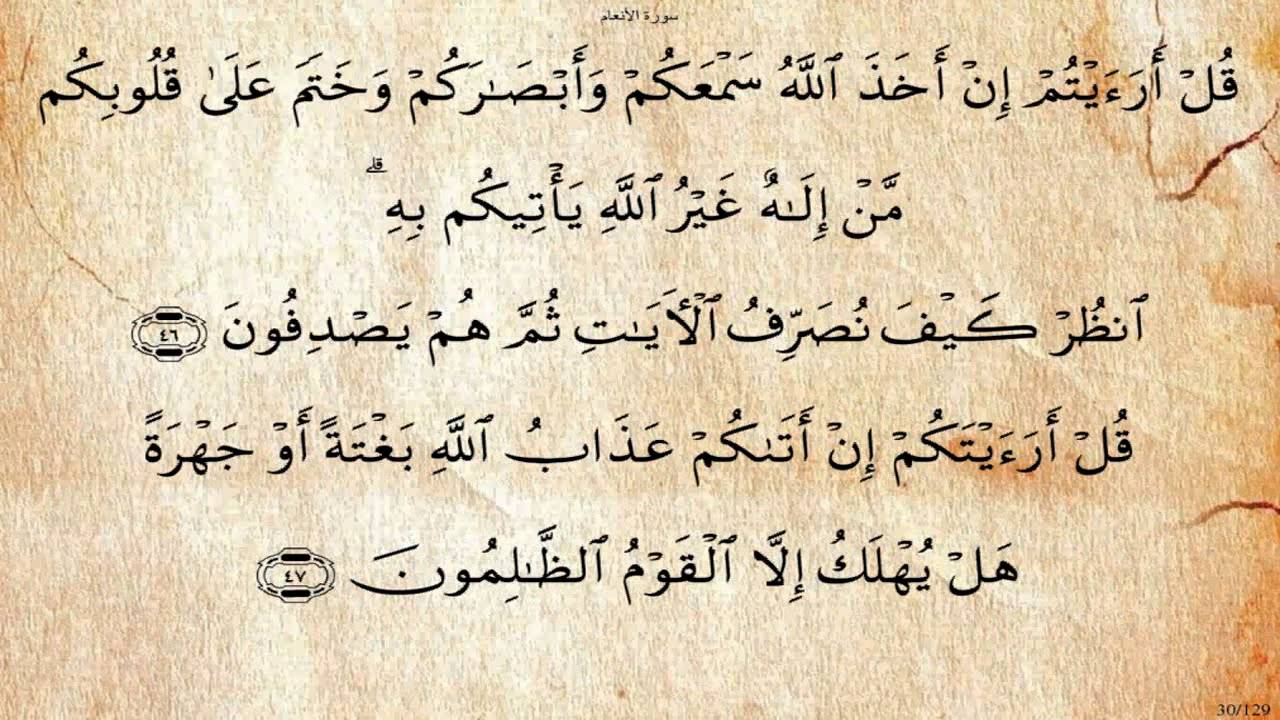 سورة الأنعام
قُلْ أَرَءَيْتُمْ إِنْ أَخَذَ ٱللَّهُ سَمْعَكُمْ وَأَبْصَـٰرَكُمْ وَخَتَمَ عَلَىٰ قُلُوبِكُم
مَّنْ إِلَـٰهٌ غَيْرُ ٱللَّهِ يَأْتِيكُم بِهِ ۗ
ٱنظُرْ كَيْفَ نُصَرِّفُ ٱلْأَيَـٰتِ ثُمَّ هُمْ يَصْدِفُونَ ٤٦
قُلْ أَرَءَيْتَكُمْ إِنْ أَتَىٰكُمْ عَذَابُ ٱللَّهِ بَغْتَةً أَوْ جَهْرَةً
هَلْ يُهْلَكُ إِلَّا ٱلْقَوْمُ ٱلظَّـٰلِمُونَ ٤٧
30/129